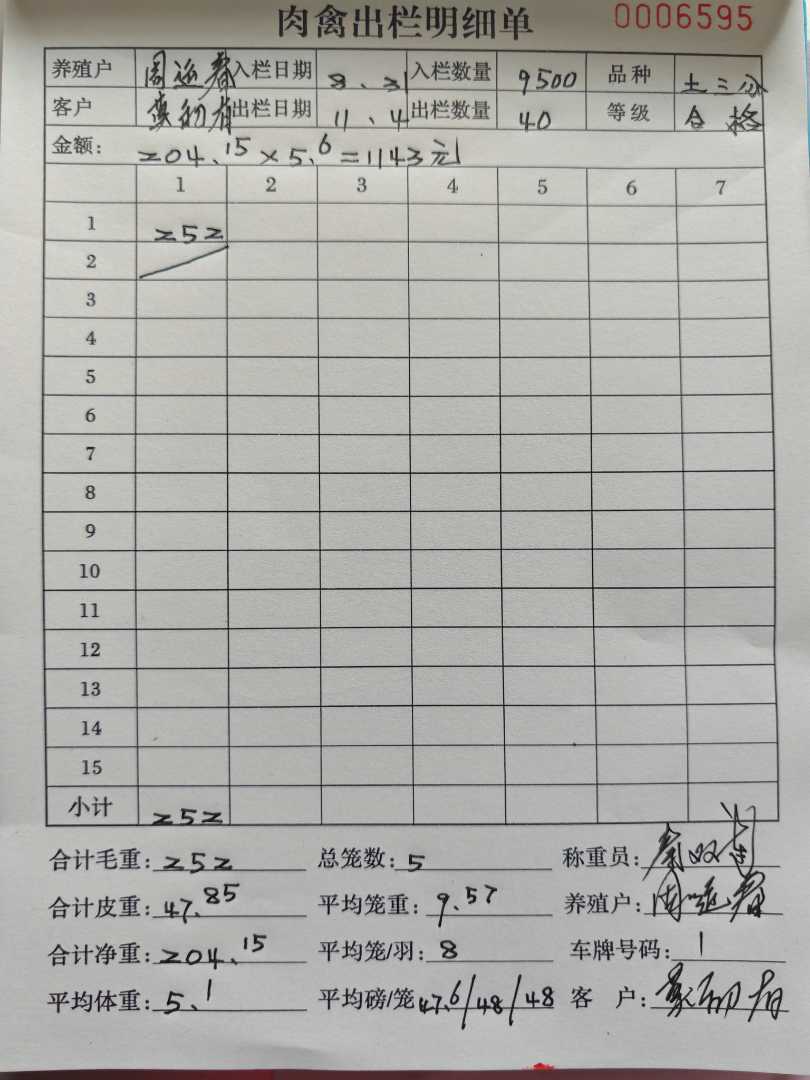 肉禽出栏明细单 0006595
养殖户 周 春 入栏日期 8、31 入栏数量 9500 品种 土三
客户 有 出栏日期 11、4 出栏数量 40 等级 合格
金额: 204.15×5.6=1143元
1 2 3 4 5 6 7
1 252
2
3
4
5
6
7
8
9
10
11
12
13
14
15
小计 252
合计毛重: 252 总笼数: 5 称重员: 秦
合计皮重: 47.85 平均笼重: 9.57 养殖户: 周 春
合计净重: 204.15 平均笼/羽: 8 车牌号码: 1
平均体重: 5.1 平均磅/笼 47.6/48/48 客 户: 有